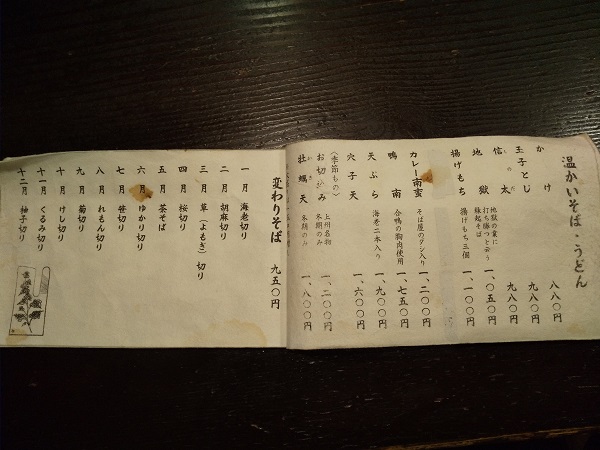 温かいそば・うどん
かけ 八八〇円
玉子とじ 九八〇円
信太 九八〇円
しのだ
地獄 地獄の釜に 打ち勝つと云う 縁起そば 一、〇五〇円
揚げもち 揚げもち三個 一、一〇〇円
カレー南蛮 そば屋のダシ入り 一、二〇〇円
鴨南 合鴨の胸肉使用 一、七五〇円
天ぷら 海老二本入り 一、九〇〇円
穴子天 一、六〇〇円
〈季節もの〉
お切込み 上州名物 冬期のみ 一、二〇〇円
牡蠣天 冬期のみ 一、八〇〇円
かき
変わりそば 九五〇円
一月 海老切り
二月 胡麻切り
三月 草(よもぎ)切り
四月 桜切り
五月 茶そば
六月 ゆかり切り
七月 笹切り
八月 れもん切り
九月 菊切り
十月 けし切り
十一月 くるみ切り
十二月 柚子切り